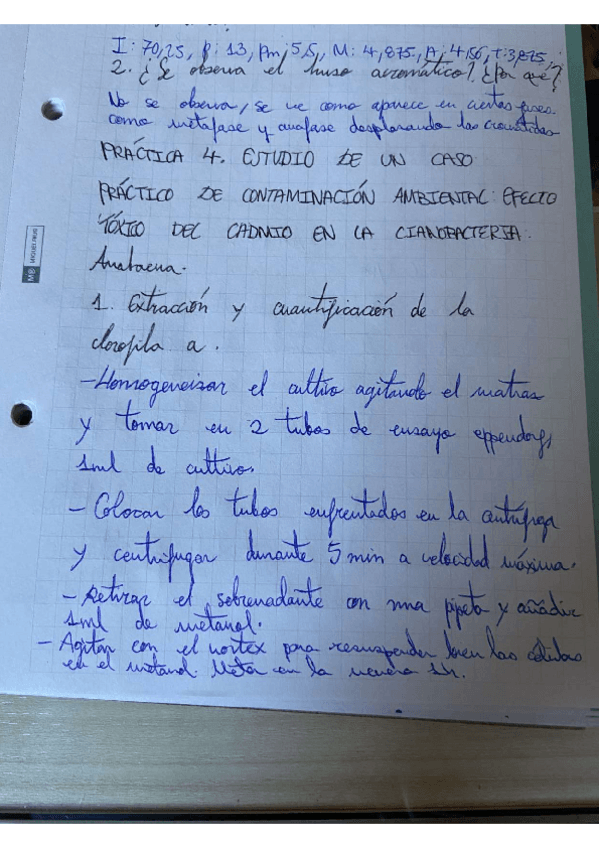 I: 70,25, P: 13, Pm: 5,5, M: 4,875, A: 4,56, T: 3,875
2. ¿Se observa el huso acromático? ¿Por qué?
No se observa, se ve como aparece en ciertas fases
como metafase y anafase desplazando las cromátidas
PRÁCTICA 4. ESTUDIO DE UN CASO
PRÁCTICO DE CONTAMINACIÓN AMBIENTAL: EFECTO
TÓXICO DEL CADMIO EN LA CIANOBACTERIA.
Anabaena.
1. Extracción y cuantificación de la
clorofila a.
- Homogeneizar el cultivo agitando el matras
y tomar en 2 tubos de ensayo eppendorf,
1ml de cultivo.
- Colocar los tubos enfrentados en la centrífuga
y centrifugar durante 5 min a velocidad máxima.
- Retirar el sobrenadante con una pipeta y añadir
1ml de metanol.
- Agitar con el vortex para resuspender bien las células
en el metanol. Meter en la nevera 1h.